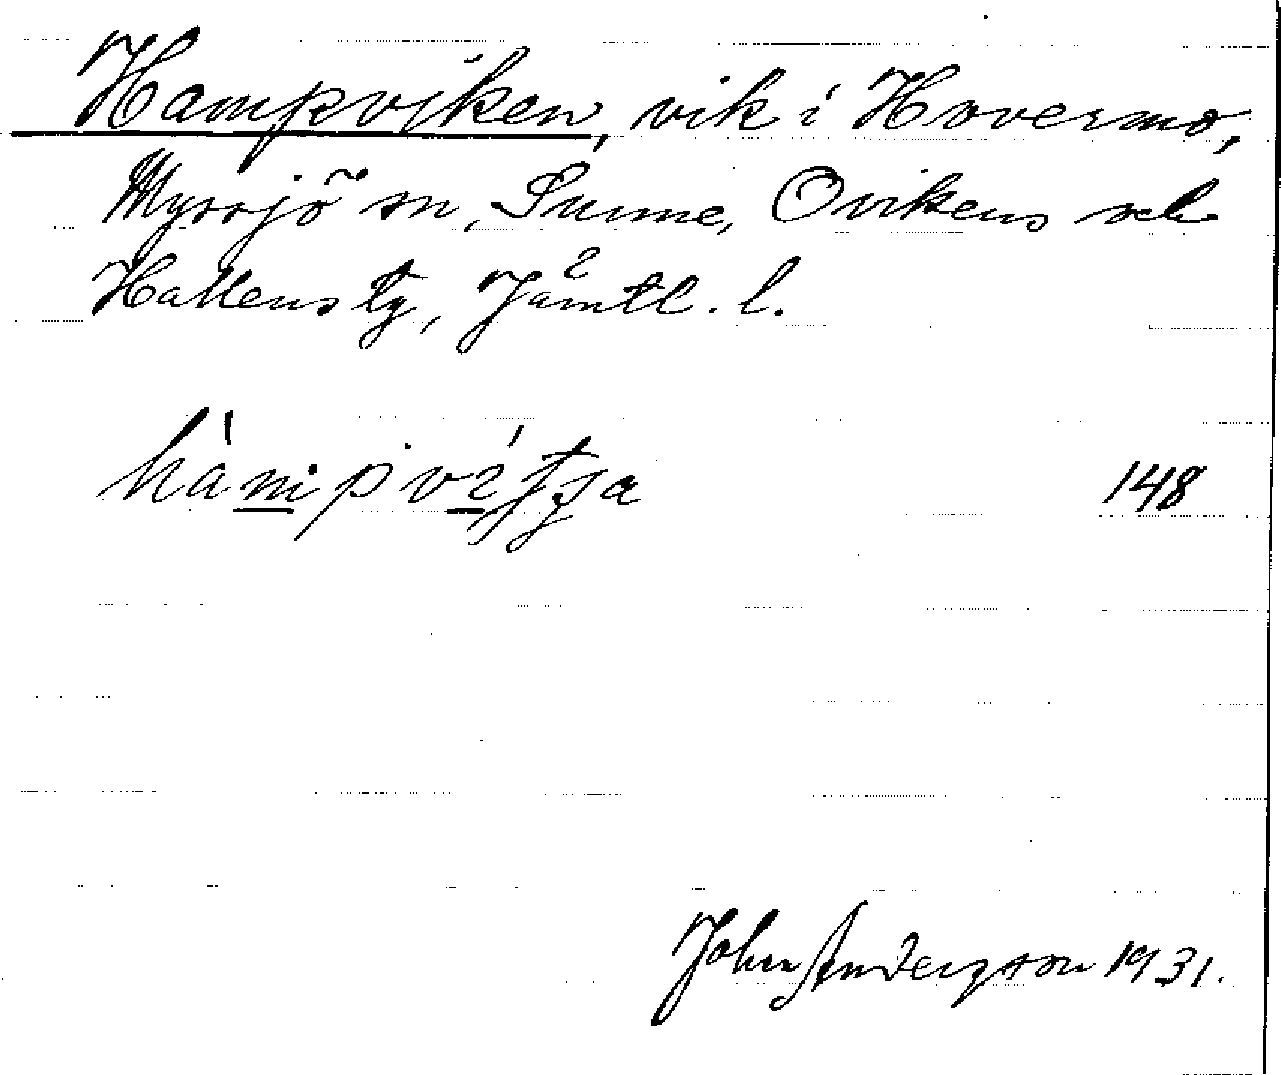 Hampviken, vik i Hovermo,
Myssjö sn, Sunne, Ovikens och
Hallens tg, Jämtl. l.
148
John Andersson 1931.